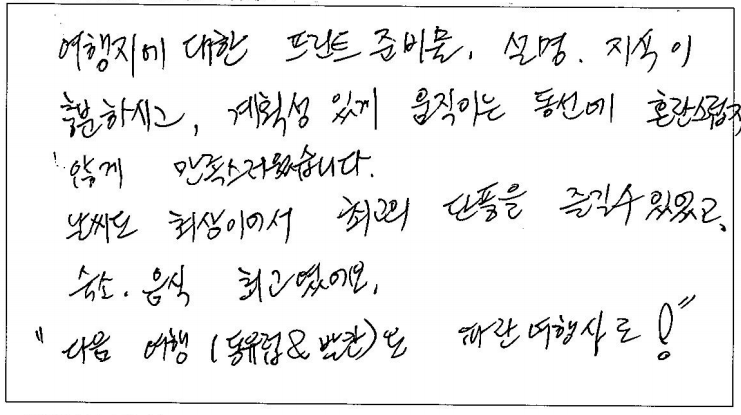 여행지에 대한 프린트 준비물, 설명. 지식이
충분하시고, 계획성 있게 움직이는 동선에 혼란스럽지
않게 만족스러웠습니다.
날씨도 최상이어서 최고의 단풍을 즐길수 있었고,
숙소. 음식 최고였어요.
"다음 여행 (동유럽&발칸)도 파란여행사로!"